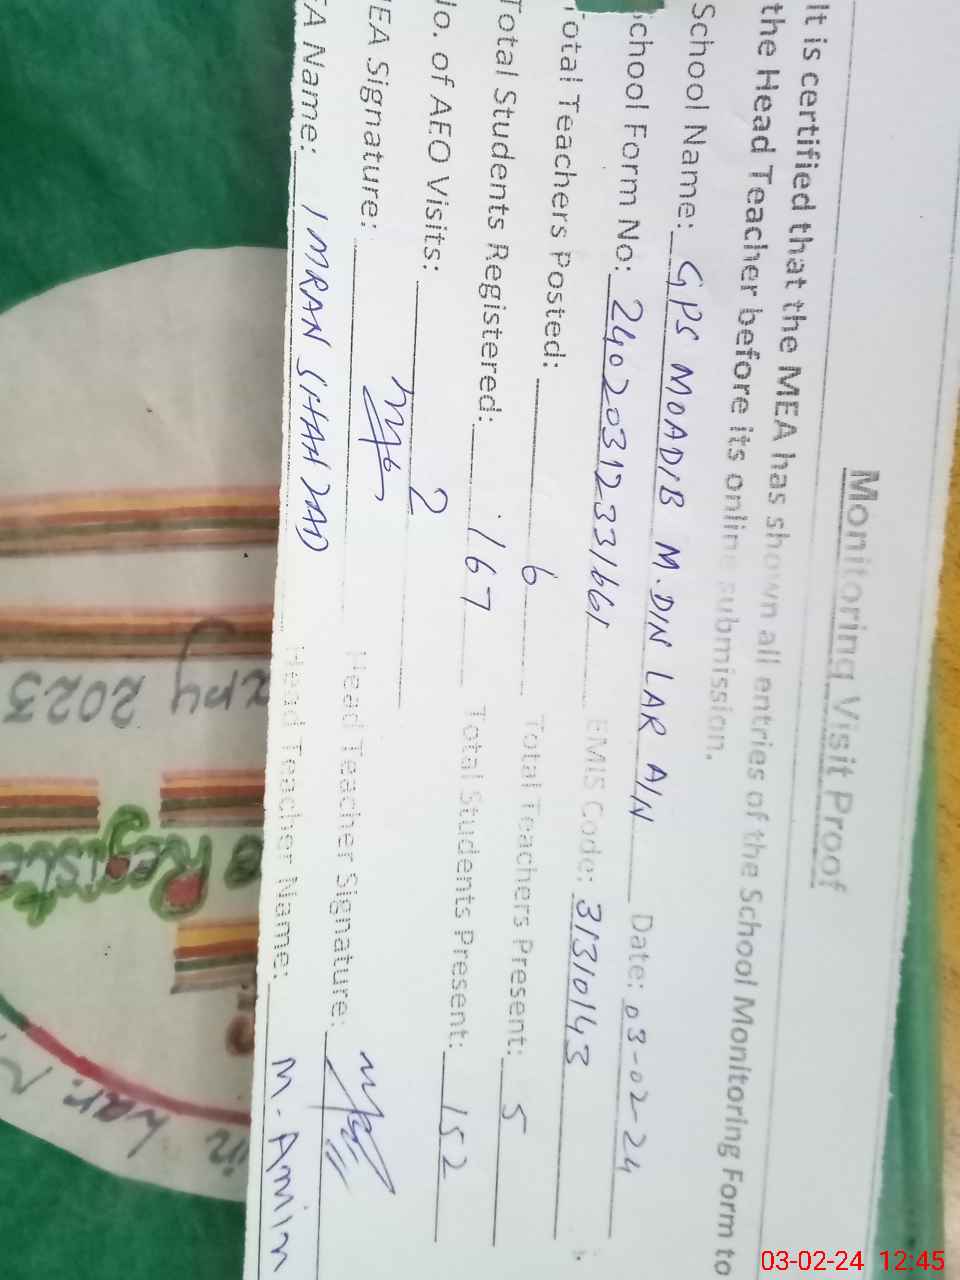 Monitoring Visit Proof
It is certified that the MEA has shown all entries of the School Monitoring Form to
the Head Teacher before its online submission.
School Name: GPS MOADIB M.DIN LAR AIN Date: 03-02-24
School Form No: 24020312331661 EMIS Code: 31310143
Total Teachers Posted: 6 Total Teachers Present: 5
Total Students Registered: 167 Total Students Present: 152
No. of AEO Visits: 2
EA Signature: Head Teacher Signature:
EA Name: IMRAN SHAHZAD Head Teacher Name: M. Amin
2023
03-02-24 12:45